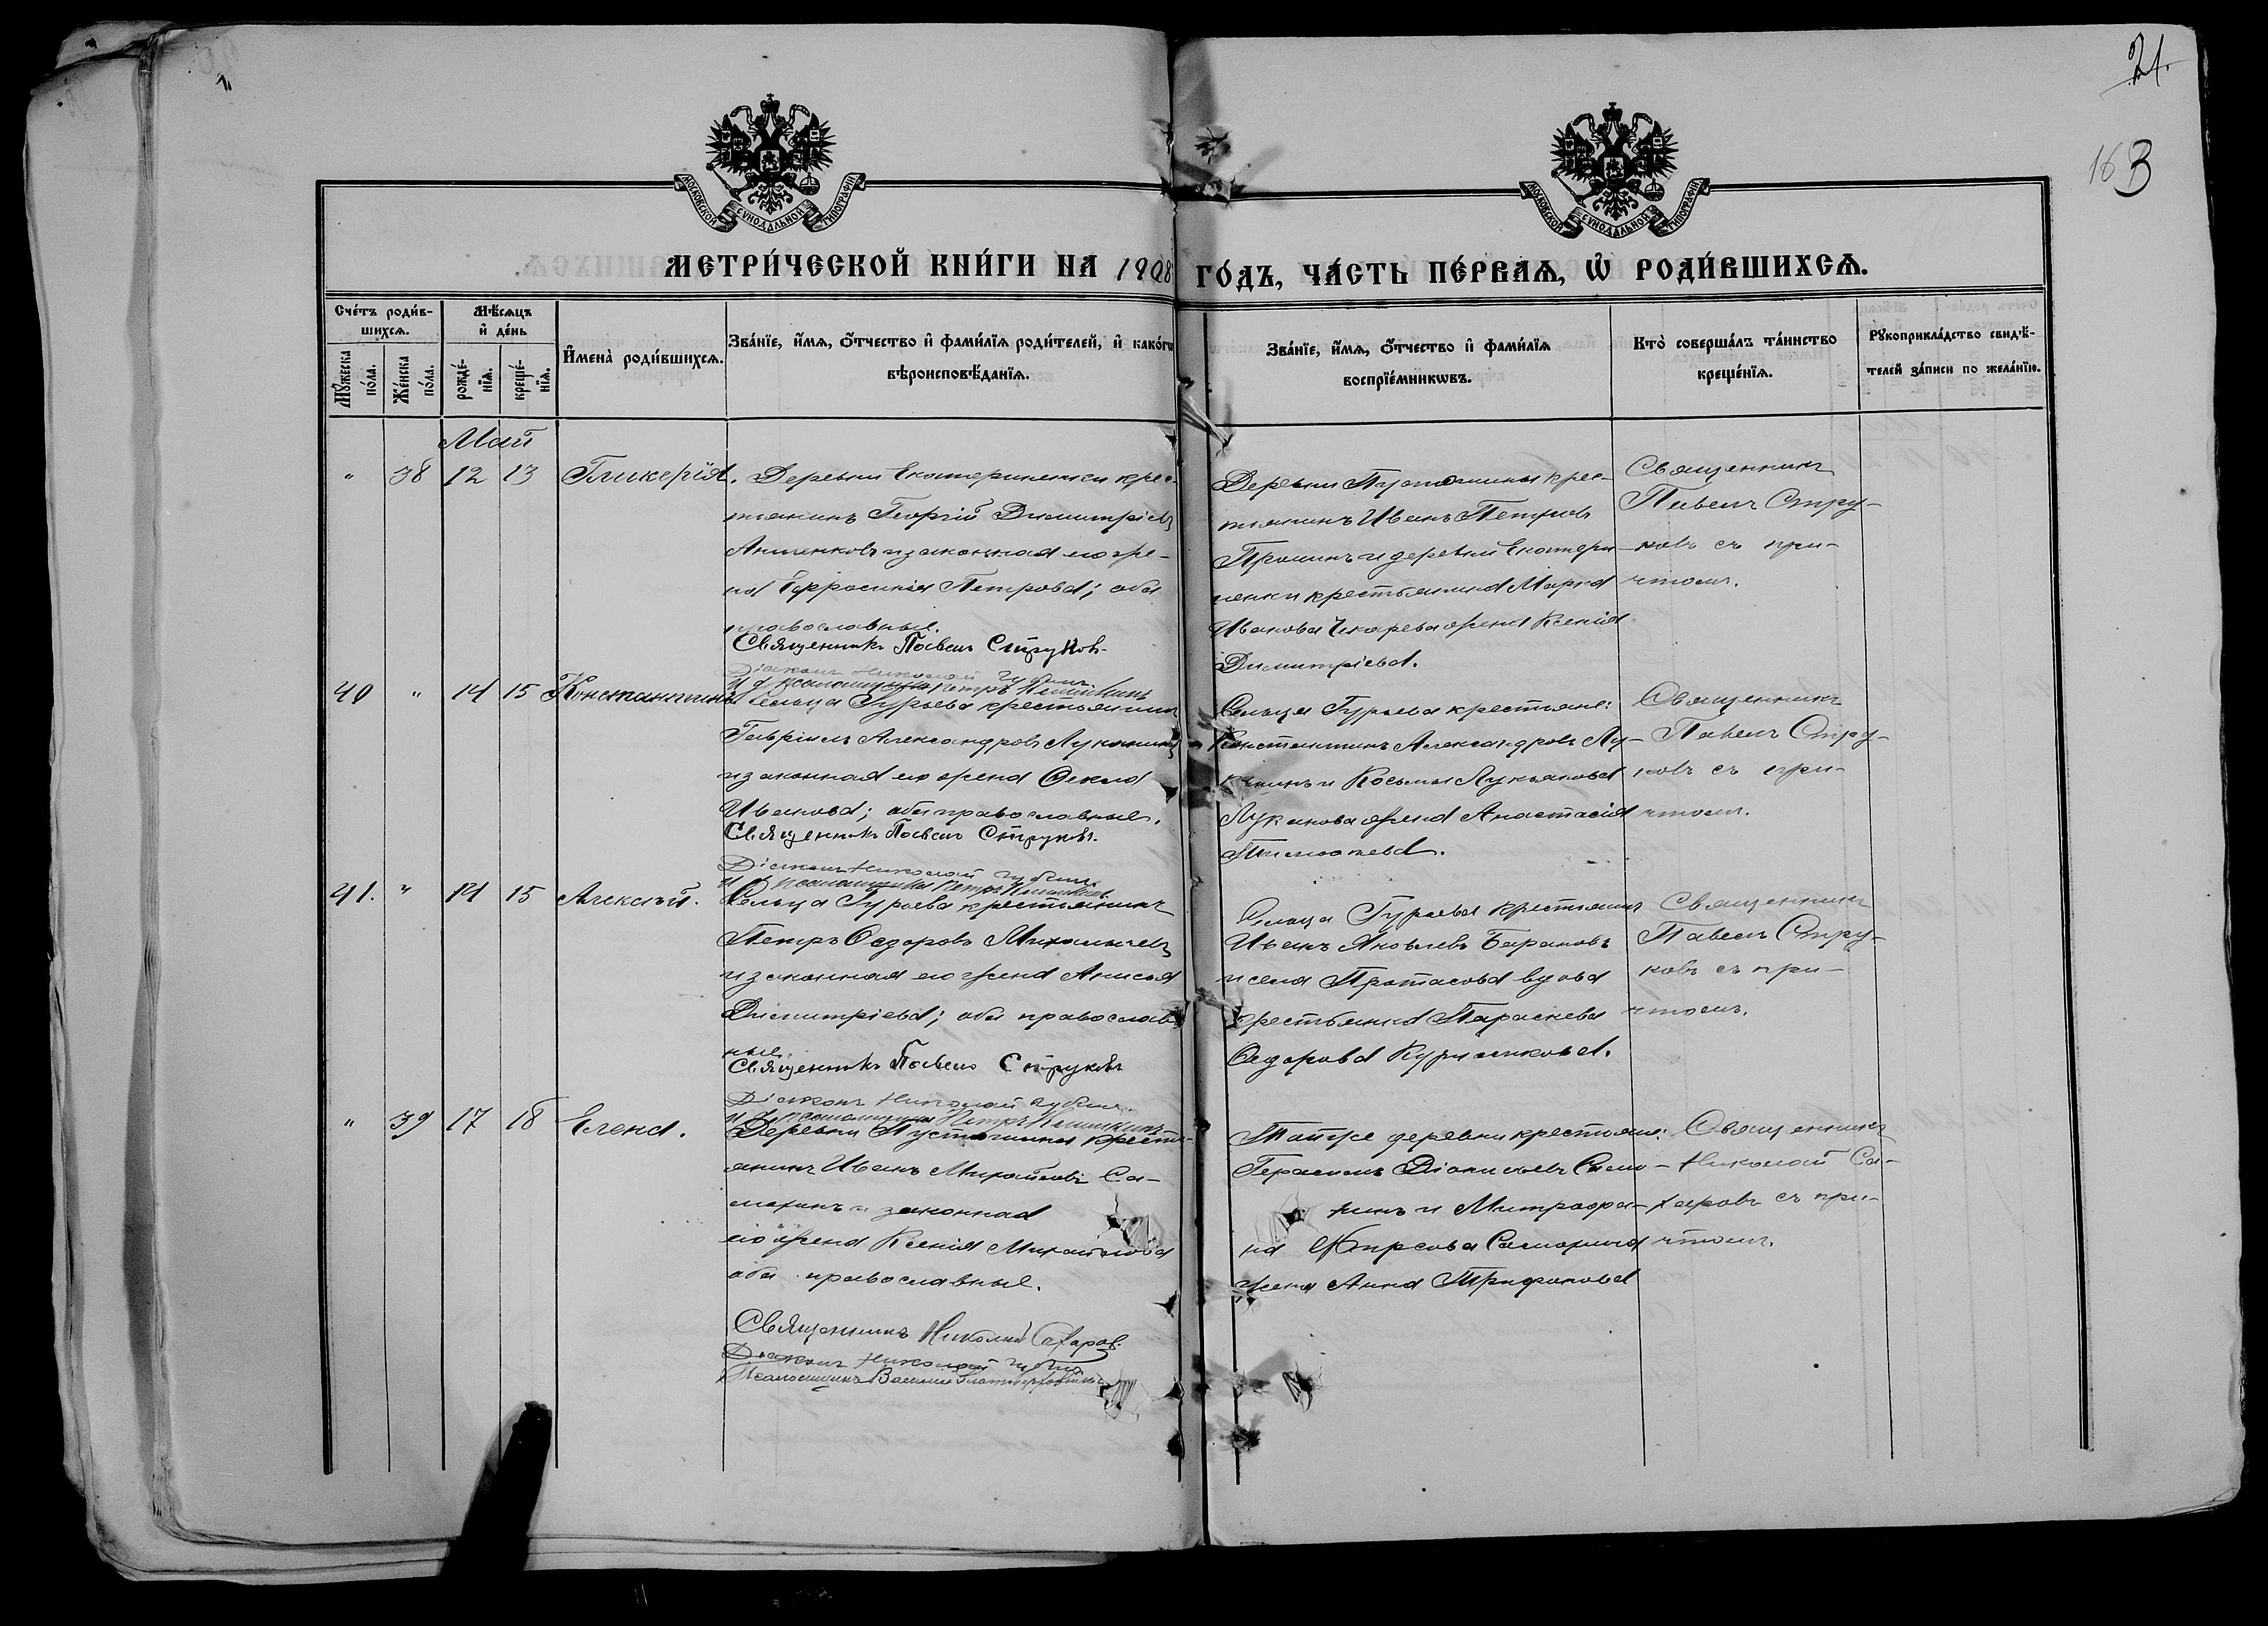 21.
163
МОСКОВСКОЙ СѴНОДАЛЬНОЙ ТИПОГРАФІИ
МОСКОВСКОЙ СѴНОДАЛЬНОЙ ТИПОГРАФІИ
МЕТРИ́ЧЕСКОЙ КНИ́ГИ НА 1908 ГО́ДЪ, ЧА́СТЬ ПЕ́РВАѦ, Ѡ҆ РОДИ́ВШИХСѦ.
Сче́тъ роди́в-
шихсѧ.
Мꙋ́жеска по́ла.
Же́нска по́ла.
Мѣ́сѧцъ
и҆ де́нь
рожде́-
нїѧ.
креще́-
нїѧ.
И҆мена̀ роди́вшихсѧ.
Зва́нїе, и҆́мѧ, ѻ҆́тчество и҆ фами́лїѧ роди́телей, и҆ како́гѡ
вѣроисповѣ́данїѧ.
Зва́нїе, и҆́мѧ, ѻ҆́тчество и҆ фами́лїѧ
воспрїе́мникѡвъ.
Кто̀ соверша́лъ та́инство
креще́нїѧ.
Рꙋкоприкла́дство свидѣ́-
телей за́писи по жела́нїю.
Май
" 38 12 13 Гликерія.
Деревни Екатериненки крес-
тьянинъ Георгій Димитріевъ
Анненковъ и законная его же-
на Евфросинія Петрова; оба
православные.
Священникъ Павелъ Струковъ.
Діаконъ Николай Губинъ
И. д. псаломщика Петръ
Деревни Пустошины крес-
тьянинъ Иванъ Петровъ
Пронинъ и деревни Екатери-
ненки крестьянина Марка
Иванова жена Ксенія
Димитріева.
Священникъ
Павелъ Стру-
ковъ съ при-
чтомъ.
40 " 14 15 Константинъ
Сельца Гурьева крестьянинъ
Гавріилъ Александровъ Луканинъ
и законная его жена Фекла
Иванова; оба православные.
Священникъ Павелъ Струковъ.
Діаконъ Николай Губинъ
И. д. псаломщика Петръ
Сельца Гурьева крестьяне:
Константинъ Александровъ Лу-
канинъ и Косьмы Лукьянова
Луканова жена Анастасія
Тимофеева.
Священникъ
Павелъ Стру-
ковъ съ при-
чтомъ.
41. " 14 15 Алексѣй.
Сельца Гурьева крестьянинъ
Петръ Ѳедоровъ Михалычевъ
и законная его жена Анисья
Димитріева; оба православ-
ные.
Священникъ Павелъ Струковъ
Діаконъ Николай Губинъ
И. д. псаломщика Петръ
Сельца Гурьева крестьянинъ
Иванъ Яковлевъ Барановъ
и села Протасова вдова
крестьянка Параскева
Ѳедорова
Священникъ
Павелъ Стру-
ковъ съ при-
чтомъ.
" 39 17 18 Елена.
Деревни Пустошины кресть-
янинъ Иванъ Михайловъ Са-
мохинъ и законная
его жена Ксенія Михайлова
оба православные.
Священникъ Николай Сахаровъ.
Діаконъ Николай Губинъ
Псаломщикъ Василій
Той же деревни крестьяне:
Герасимъ Діонисьевъ Само-
хинъ и Митрофа-
на Фирсова Самохина
жена Анна Трифонова
Священникъ
Николай Са-
харовъ съ при-
чтомъ.